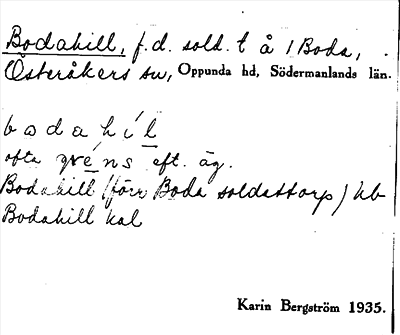 Bodahill, f.d. sold. t å 1 Boda,
Österåkers sn, Oppunda hd, Södermanlands län.
bodahíl
ofta gréns eft. äg.
Bodahill (förr Boda soldattorp) hb
Bodahill kal
Karin Bergström 1935.